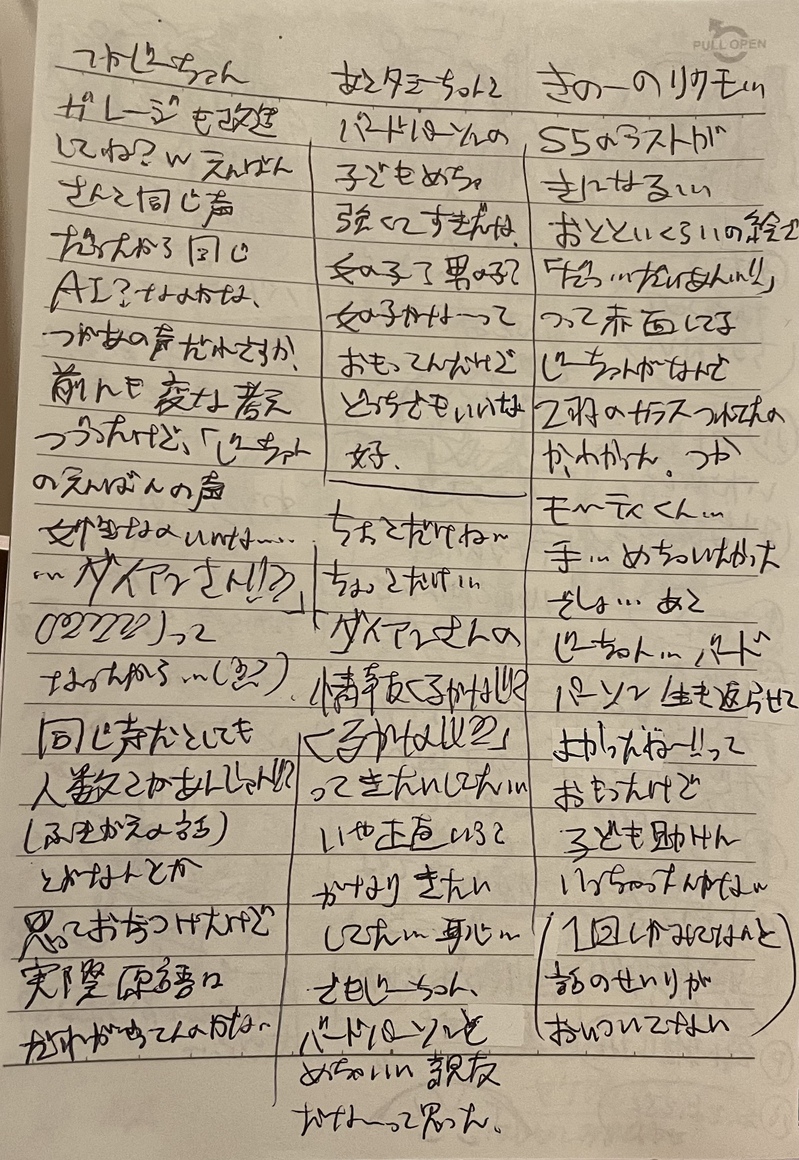 PULL OPEN
つかじーちゃん
ガレージも改造
してね?w えんばん
さんと同じ声
だったから同じ
AI?なのかな、
つかあの声だれですか、
前んも変な考え
つづったけど、「じーちゃん
のえんばんの声
女性なのいいな……
…ダイアンさん!!??
」って
なったから…(!!?)
同じ声だとしても
人数とかあんじゃん!!?
(ふきかえの話)
とかなんとか
思っておちつけたけど
実際原語は
だれがやってんのかな…
あとタミーちゃんと
バードパーソンの
子どもめちゃ
強くてすきだな、
女の子て男の子?
女の子かなーって
おもってんだけど
どっちでもいいな
好、
ちょっとだけね…
ちょっとだけ…
「ダイアンさんの
情報くるかな!!?
くるかな!!??」
ってきたいしてた…
いや正直いうと
かなりきたい
してた…再心…
でもじーちゃん、
バードパーソンと
めちゃいい親友
だなーって思った。
きのーのリクモ…
S5のラストが
きになる…
おとといくらいの絵で
「だっ…だいあん…!!」
つって赤面してる
じーちゃんがなんで
2羽のカラスつれてたの
か、わかった。つか
モーティくん…
手…めちゃいたかった
でしょ…あと
じーちゃん…バード
パーソン生き返らせて
よかったねー!!って
おもったけど
子ども助けん
いっちゃったんかな…
(1回しかみてないと
話のせいりが
おいついてない)